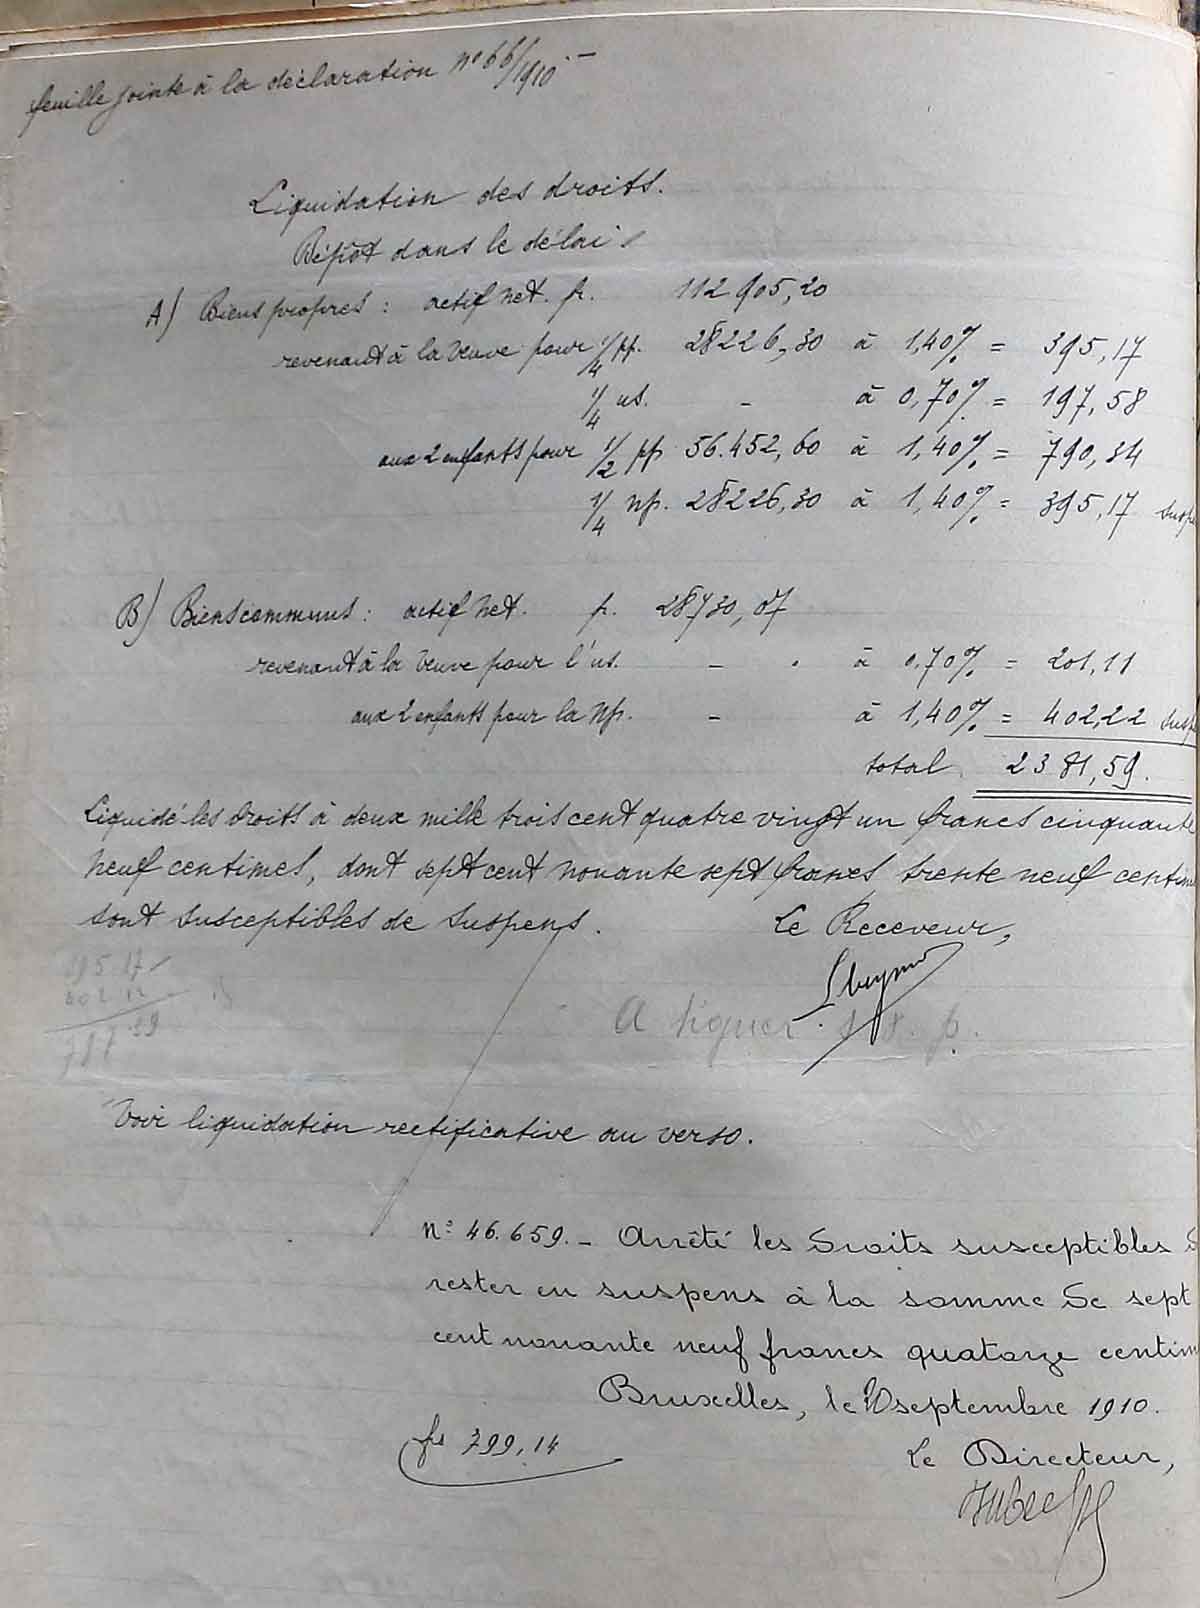 feuille jointe à la déclaration n° 66/1910 –
Liquidation des droits.
Dépôt dans le délai.
A) Biens propres : actif net. fr. 112 905,20
revenant à la veuve pour 1/4 pp. 28226,30 à 1,40% = 395,17
1/4 us. - à 0,70% = 197,58
aux 2 enfants pour 1/2 pp 56.452,60 à 1,40% = 790,34
1/4 np. 28226,30 à 1,40% = 395,17 susp
B) Biens communs : actif net. fr. 28730,07
revenant à la veuve pour l'us. - . à 0.70% = 201,11
aux 2 enfants pour la np. - à 1,40% = 402,22 susp
total 2381,59.
Liquidé les droits à deux mille trois cent quatre vingt un francs cinquante
neuf centimes, dont sept cent nonante sept francs trente neuf centimes
sont susceptibles de suspens.
Le Receveur,
395 17
402 22
797 39
A
Voir liquidation rectificative au verso.
N° 46.659. – Arrêté les droits susceptibles d
rester en suspens à la somme de sept
cent nonante neuf francs quatorze centim
Bruxelles, le 20 septembre 1910.
frs 799,14
Le Directeur,